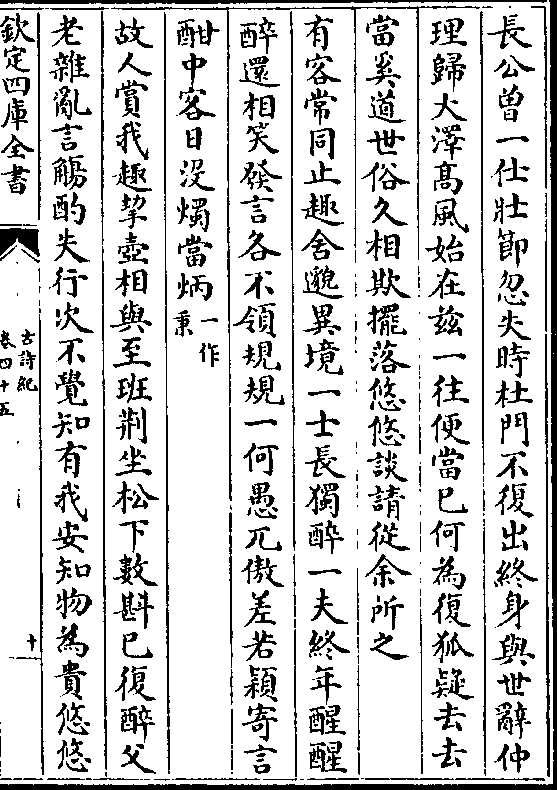 長公曽一仕壯節忽失時杜門不復出終身與世辭仲
理歸大澤髙風始在兹一往便當已何為復狐疑去去
當奚道世俗久相欺擺落悠悠談請從余所之
有客常同止趣舍邈異境一士長獨醉一夫終年醒醒
醉還相笑發言各不領規規一何愚兀傲差若穎寄言
酣中客日沒燭當炳一作秉
故人賞我趣挈壺相與至班荆坐松下數斟已復醉父
老雜亂言觴酌失行次不覺知有我安知物為貴悠悠
欽定四庫全書
古詩紀
卷四十五
十